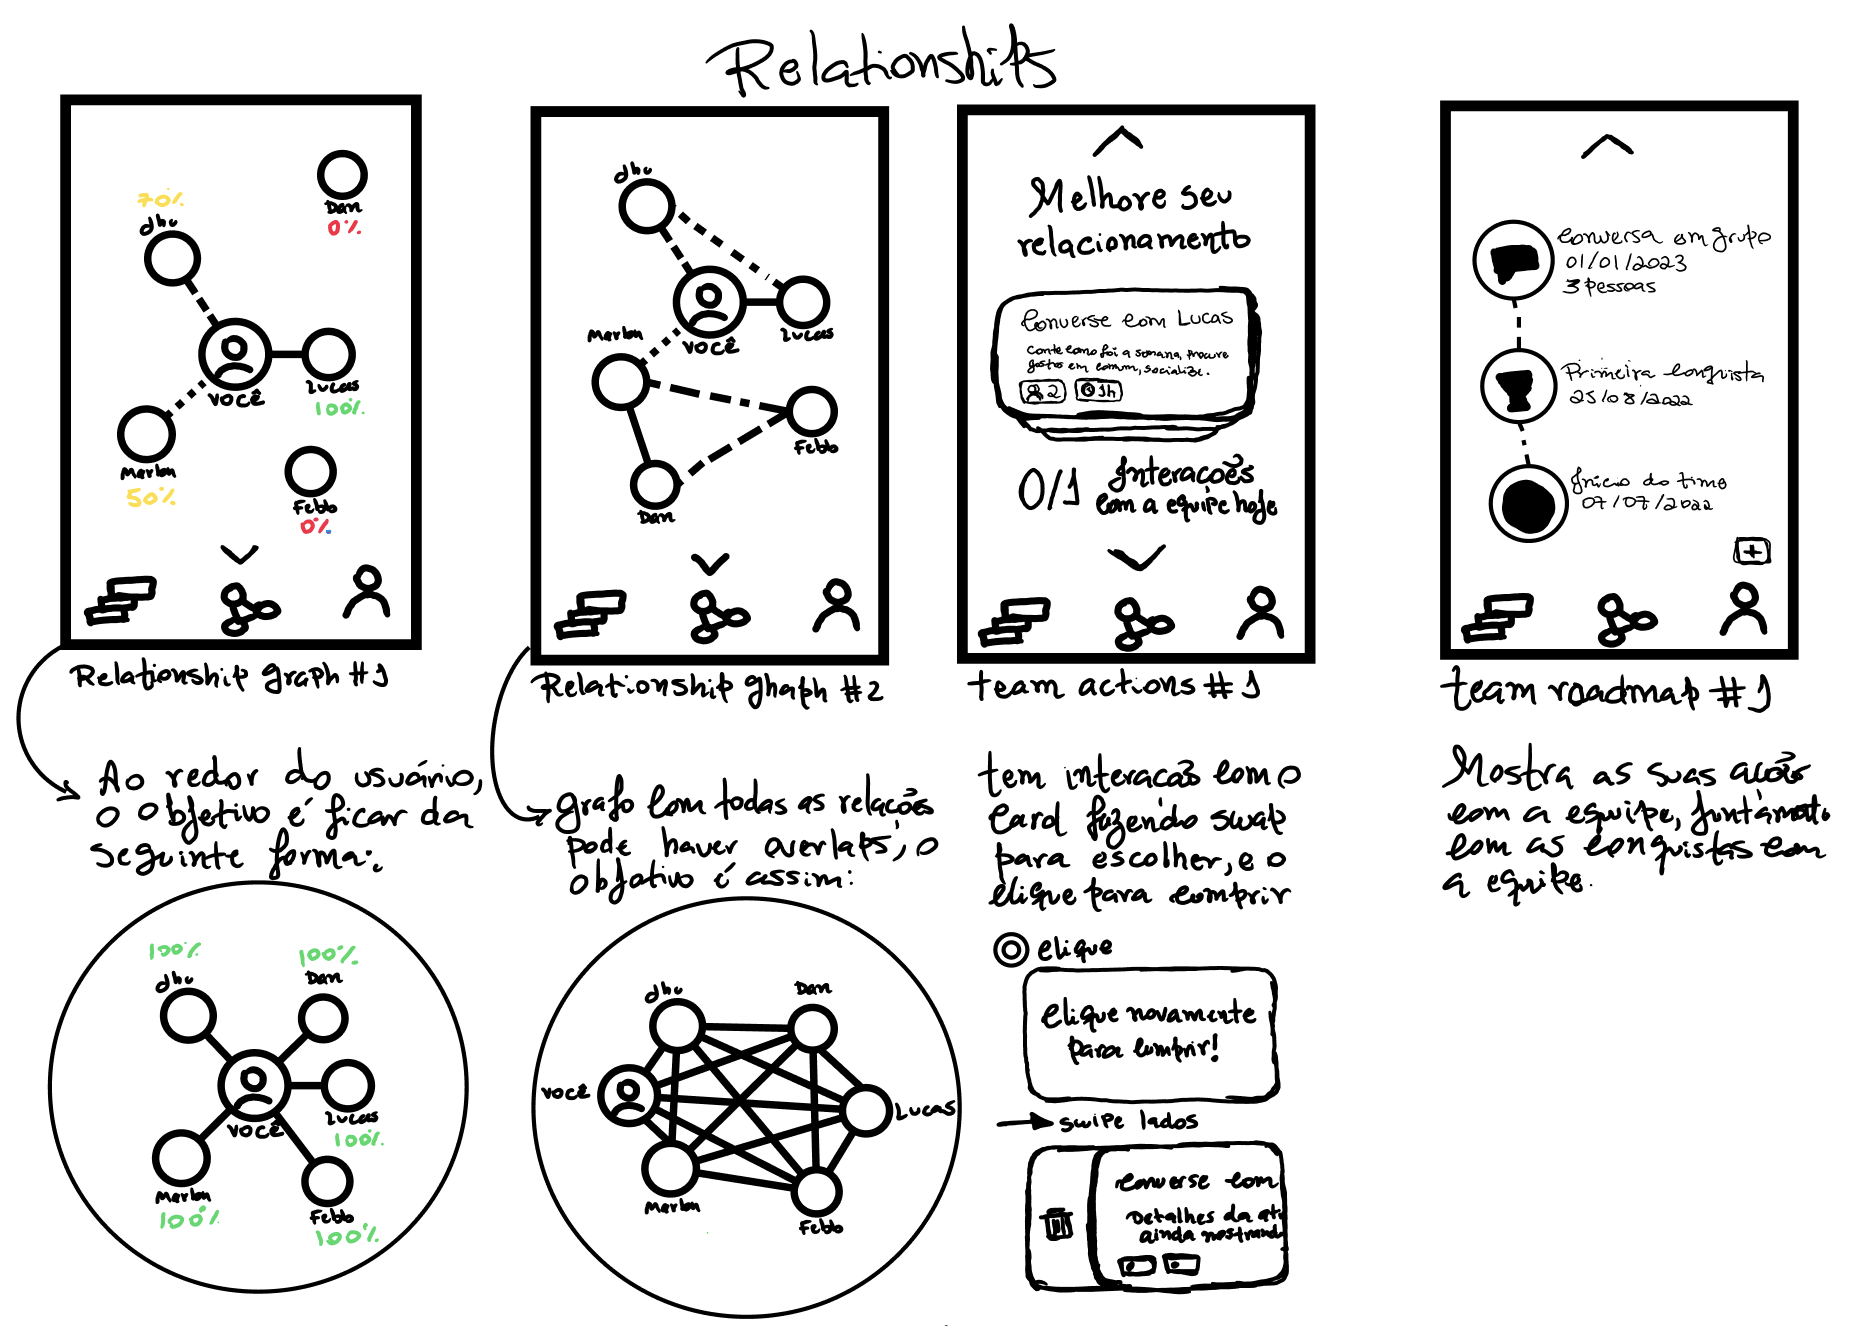 Relationships
70%
dhu
Dan
0%
Você
Lucas
100%
Marlon
50%
Febb
0%
Relationship graph #1
Ao redor do usuário,
o objetivo é ficar da
seguinte forma:
100%
dhu
100%
Dan
Você
Lucas
100%
Marlon
100%
Febb
100%
dhu
Marlon
Você
Lucas
Febb
Dan
Relationship ghaph #2
grafo com todas as relações
pode haver overlaps, o
objetivo é assim:
dhu
Dan
Você
Lucas
Marlon
Febb
Melhore seu
relacionamento
Converse com Lucas
Conte como foi a semana, procure
gostos em comum, socialize.
2
1h
0/1 Interacões
com a equipe hoje
team actions #1
tem interacão com o
card fazendo swap
para escolher, e o
clique para cumprir
clique
clique novamente
para cumprir!
swipe lados
Converse com
Detalhes da ati
ainda mostrand
Conversa em grupo
01/01/2023
3 pessoas
Primeira conquista
25/08/2022
Início do time
07/07/2022
+
team roadmap #1
Mostra as suas acões
com a equipe, juntamente
com as conquistas com
a equipe.